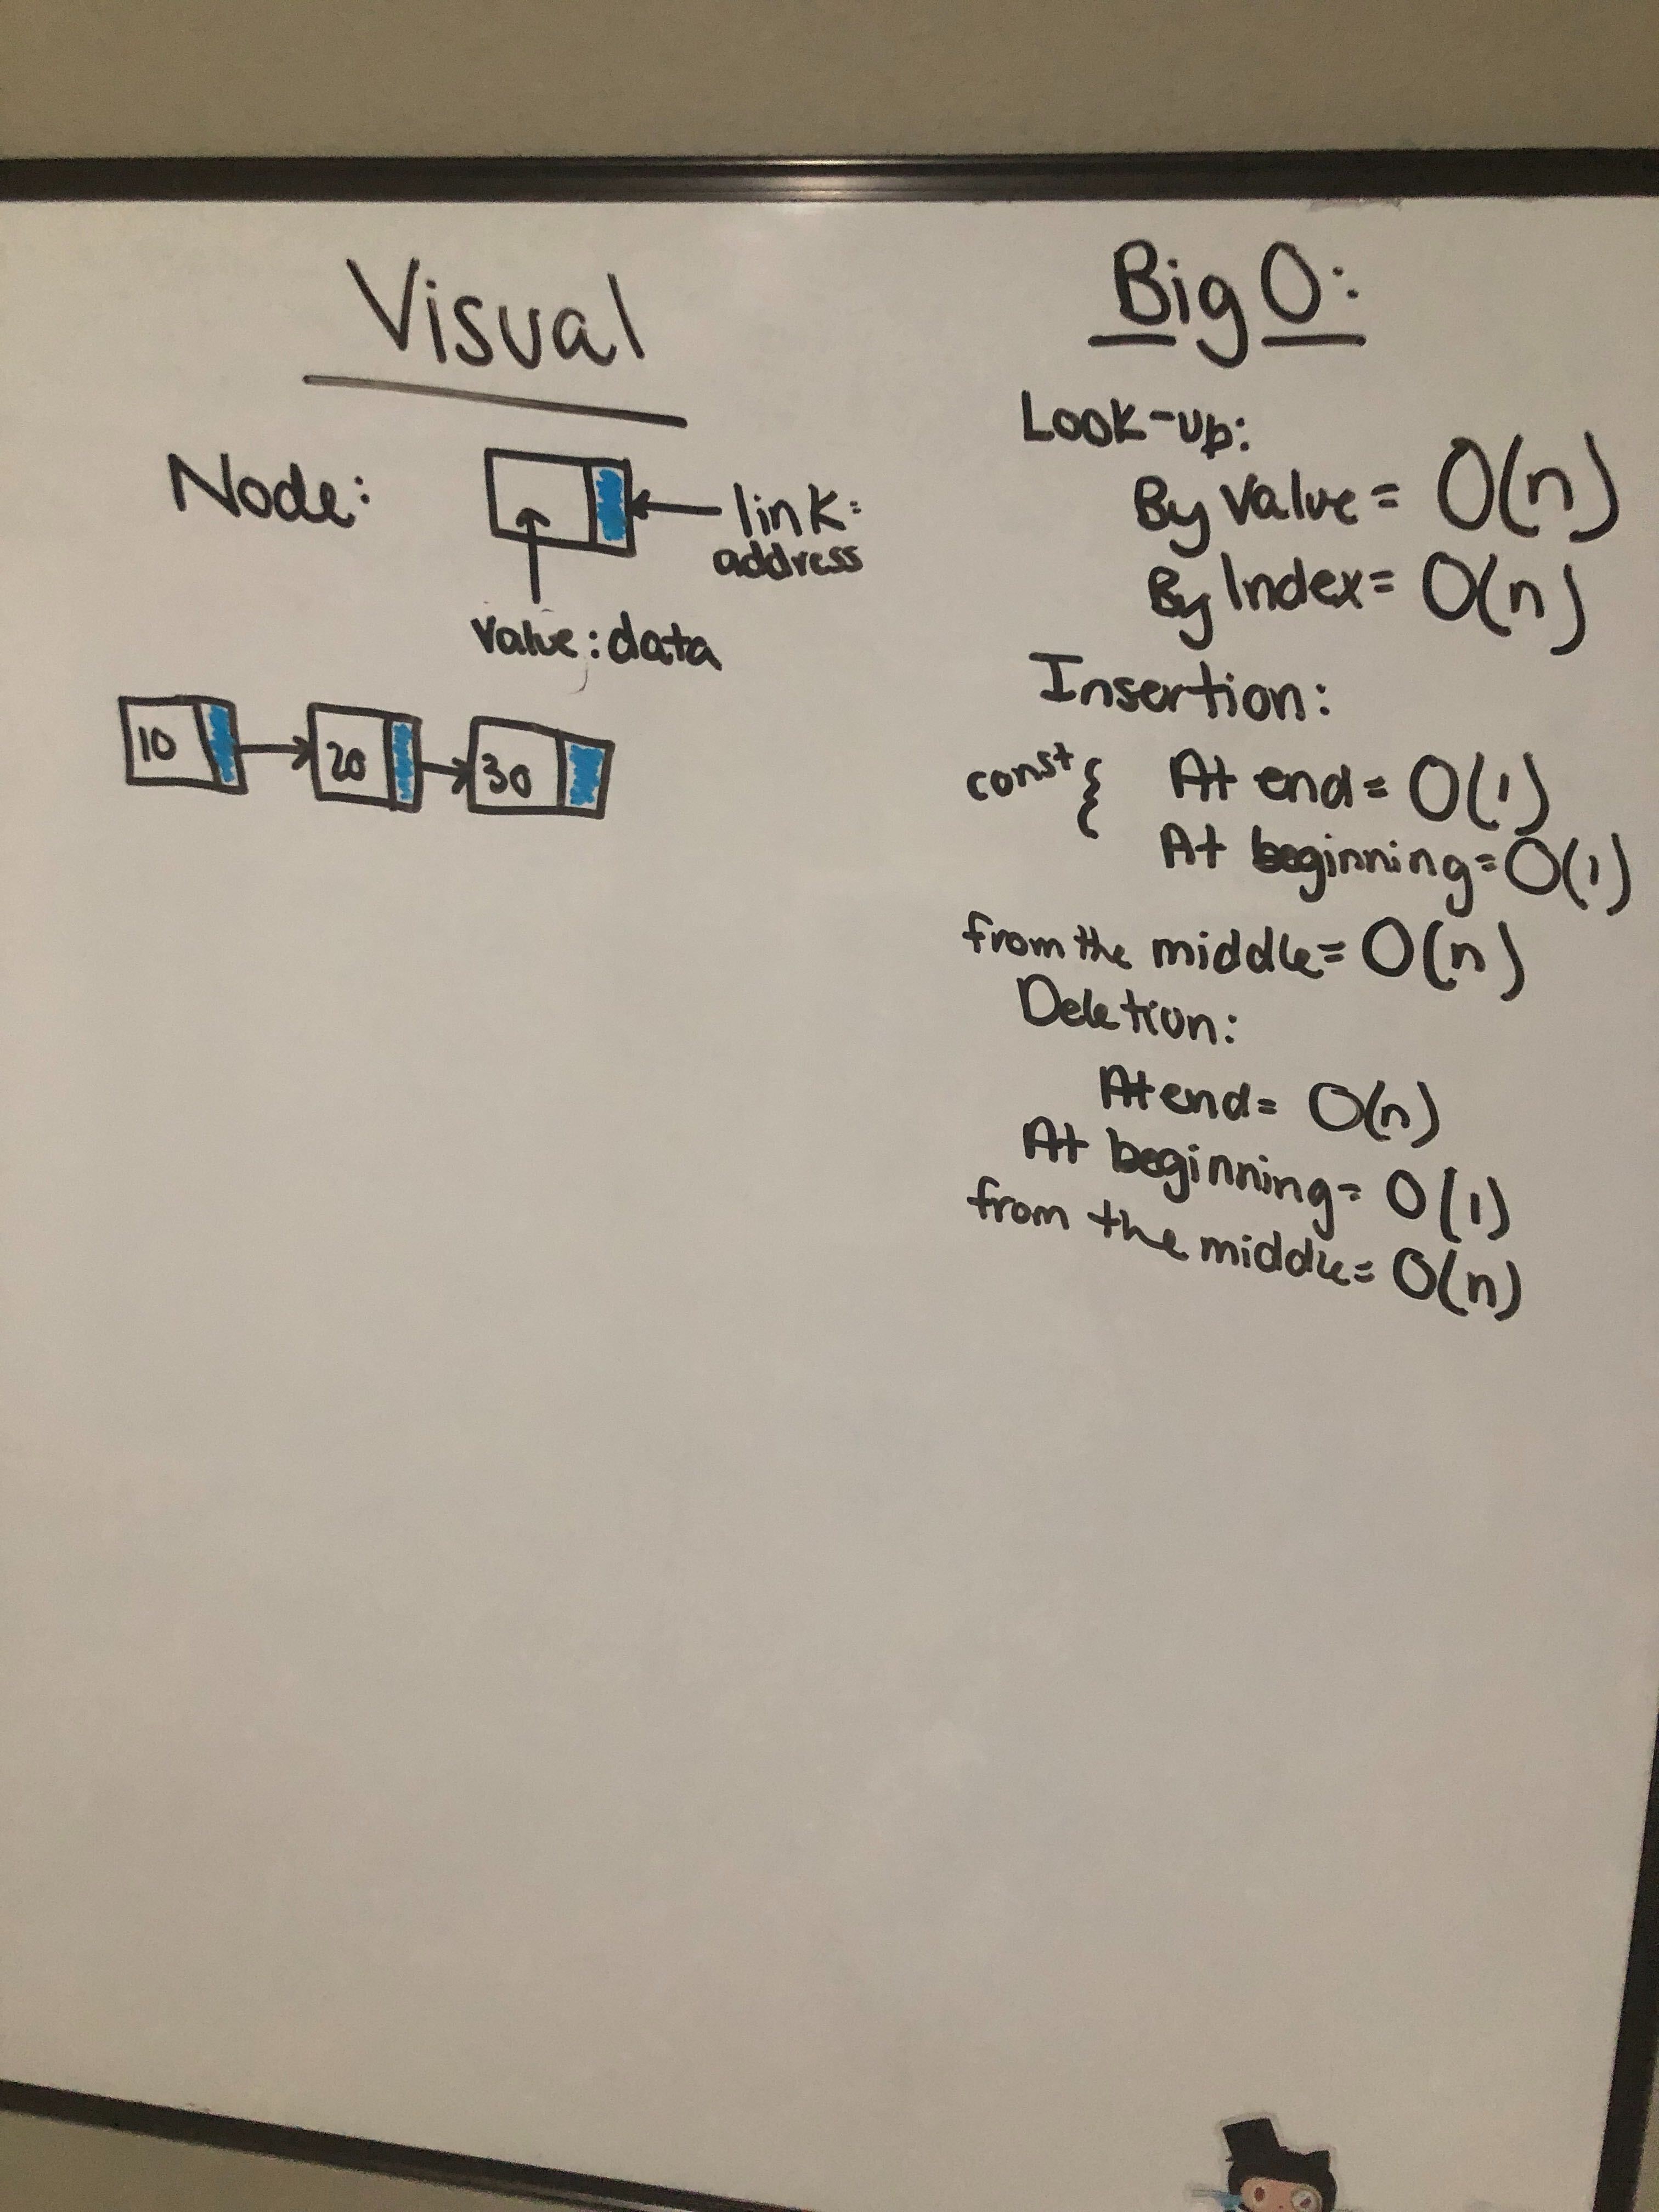 Visual
Node:
link:
address
value: data
10
20
30
Big O:
Look-up:
By Value = O(n)
By Index = O(n)
Insertion:
const { At end = O(1)
At beginning = O(1)
from the middle = O(n)
Deletion:
At end = O(n)
At beginning = O(1)
from the middle = O(n)